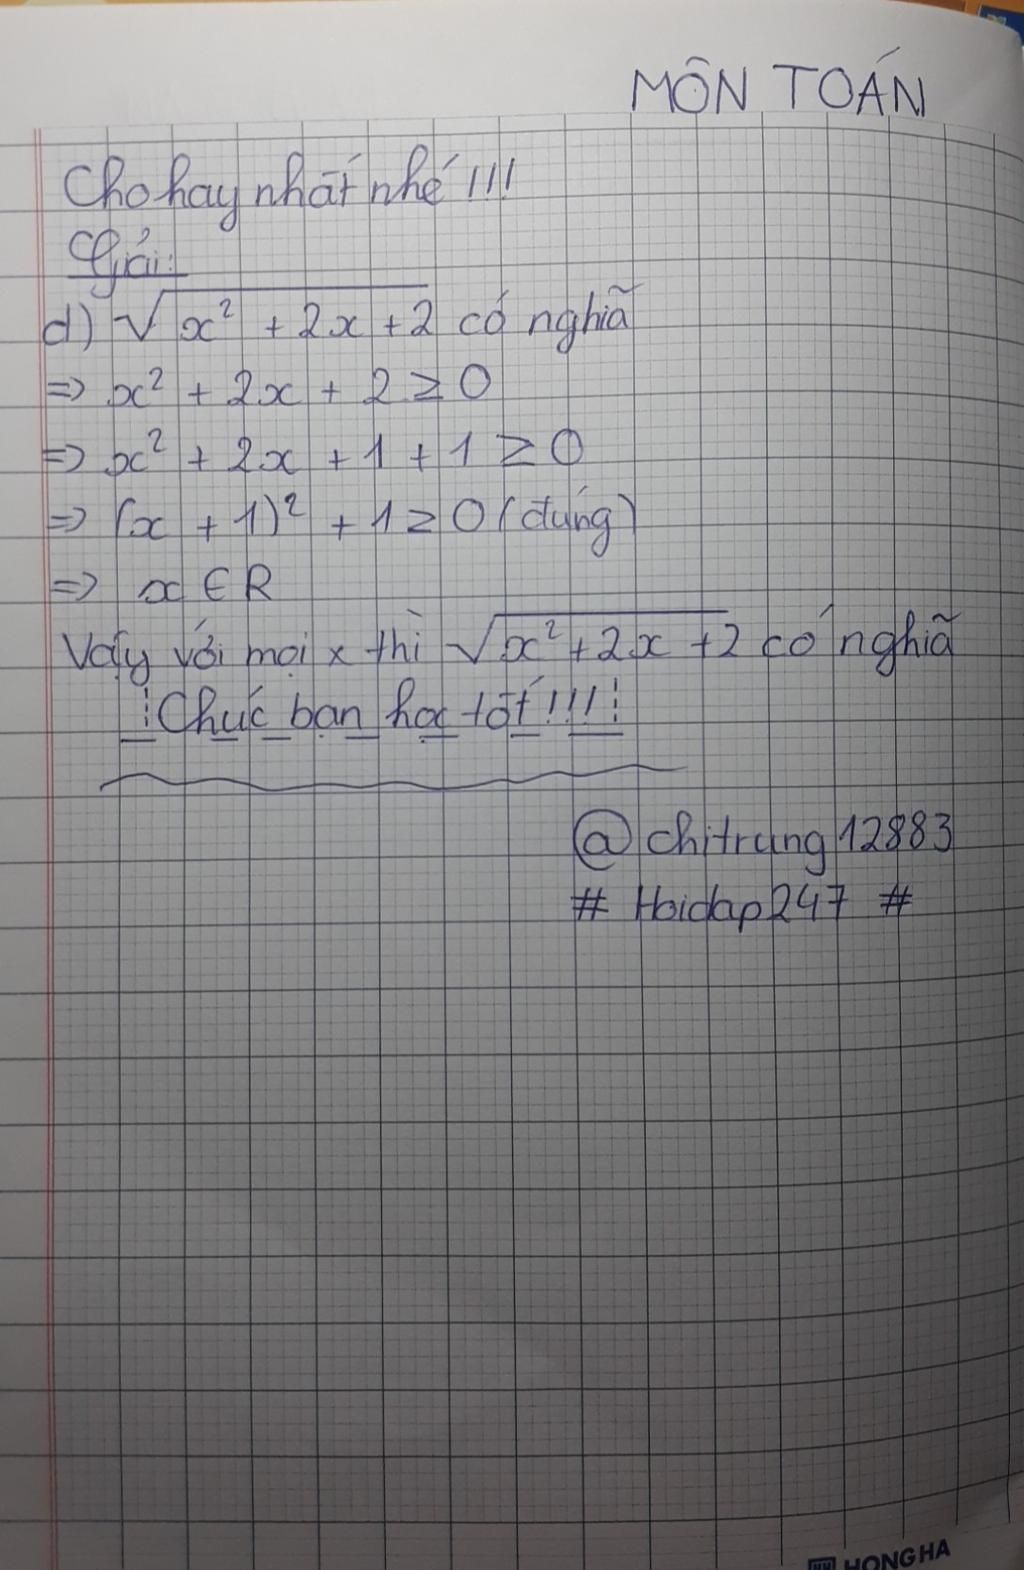 MÔN TOÁN
Cho hay nhất nhé !!!
Giải:
d) √x² + 2x + 2 có nghĩã
=> x² + 2x + 2 ≥ 0
=> x² + 2x + 1 + 1 ≥ 0
=> (x + 1)² + 1 ≥ 0 (đúng)
=> x ∈ R
Vậy với mọi x thì √x² + 2x + 2 có nghiã
Chúc bạn học tốt !!!
@ chitrung12883
# Hoidap247 #
HONG HA